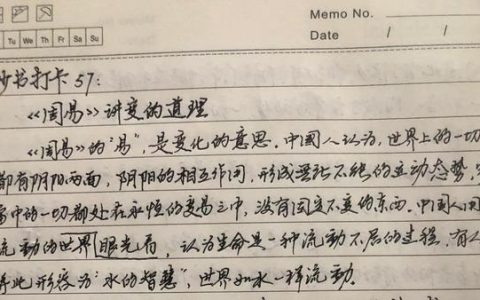 Memo No.
Tu We Th Fr Sa Su
Date / /
抄书打卡57:
《周易》讲变的道理
《周易》的“易”,是变化的意思.中国人认为,世界上的一切
都有阴阳两面,阴阳的相互作用,形成无比不绝的互动态势,
宙中的一切都处在永恒的变易之中,没有固定不变的东西.中国人用
流动的世界眼光看,认为生命是一种流动不居的过程,有人
将此形容为“水的智慧”,世界如水一样流动.